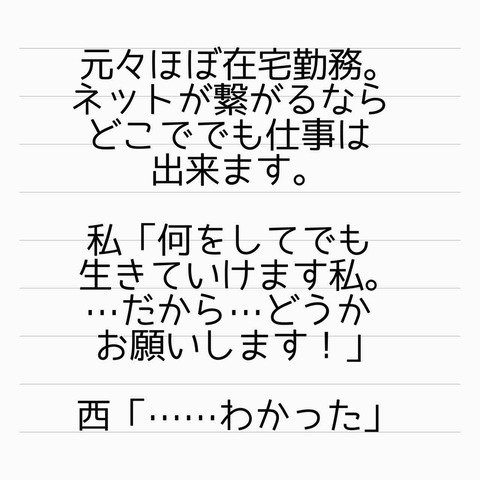 元々ほぼ在宅勤務。
ネットが繋がるなら
どこででも仕事は
出来ます。
私「何をしてでも
生きていけます私。
…だから…どうか
お願いします！」
西「……わかった」